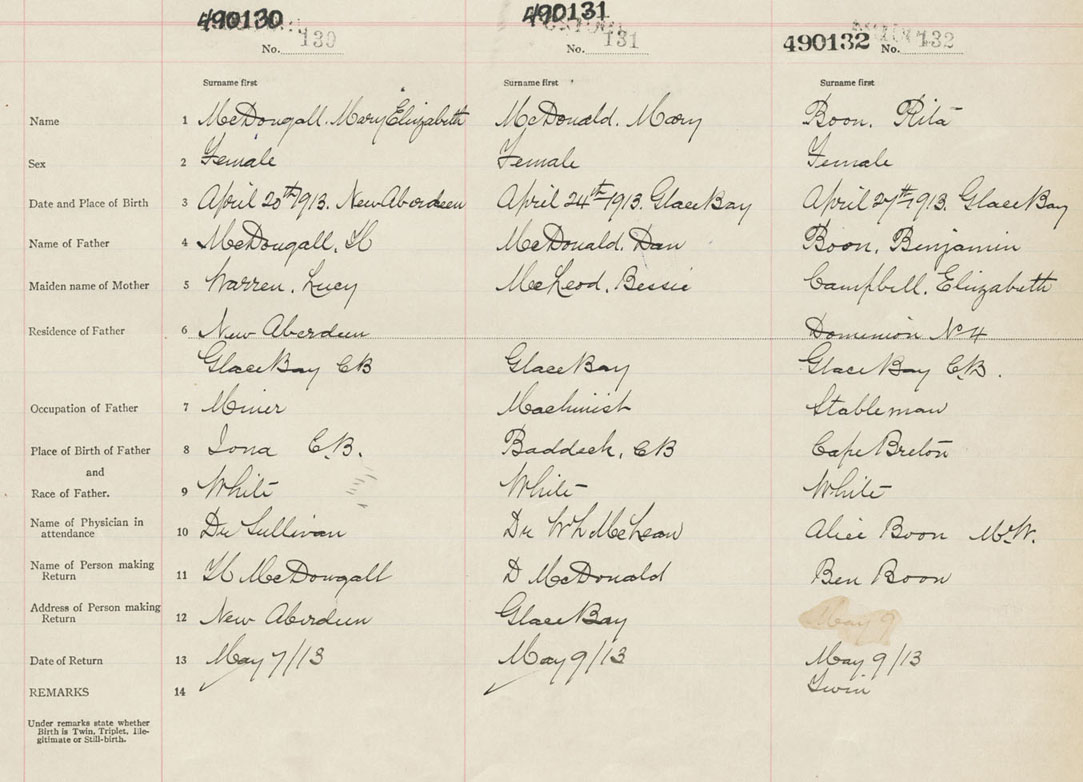 490130 490131
No. 130 No. 131 490132 No. 132
Surname first Surname first Surname first
Name 1 McDougall. Mary Elizabeth McDonald. Mary Boon. Rita
Sex 2 Female Female Female
Date and Place of Birth 3 April 20th 1913. New Aberdeen April 24th 1913. Glace Bay April 27th 1913. Glace Bay
Name of Father 4 McDougall. H McDonald. Dan Boon. Benjamin
Maiden name of Mother 5 Warren. Lucy McLeod. Bessie Campbell. Elizabeth
Residence of Father 6 New Aberdeen Dominion No 4
Glace Bay CB Glace Bay Glace Bay C.B.
Occupation of Father 7 Miner Machinist Stableman
Place of Birth of Father 8 Iona C.B. Baddeck. CB Cape Breton
and
Race of Father. 9 White White White
Name of Physician in
attendance 10 Dr Sullivan Dr Wh McLean Alice Boon M.W.
Name of Person making
Return 11 H McDougall D McDonald Ben Boon
Address of Person making
Return 12 New Aberdeen Glace Bay May 9
Date of Return 13 May 7/13 May 9/13 May 9/13
REMARKS 14 Twin
Under remarks state whether
Birth is Twin, Triplet, Ille-
gitimate or Still-birth.